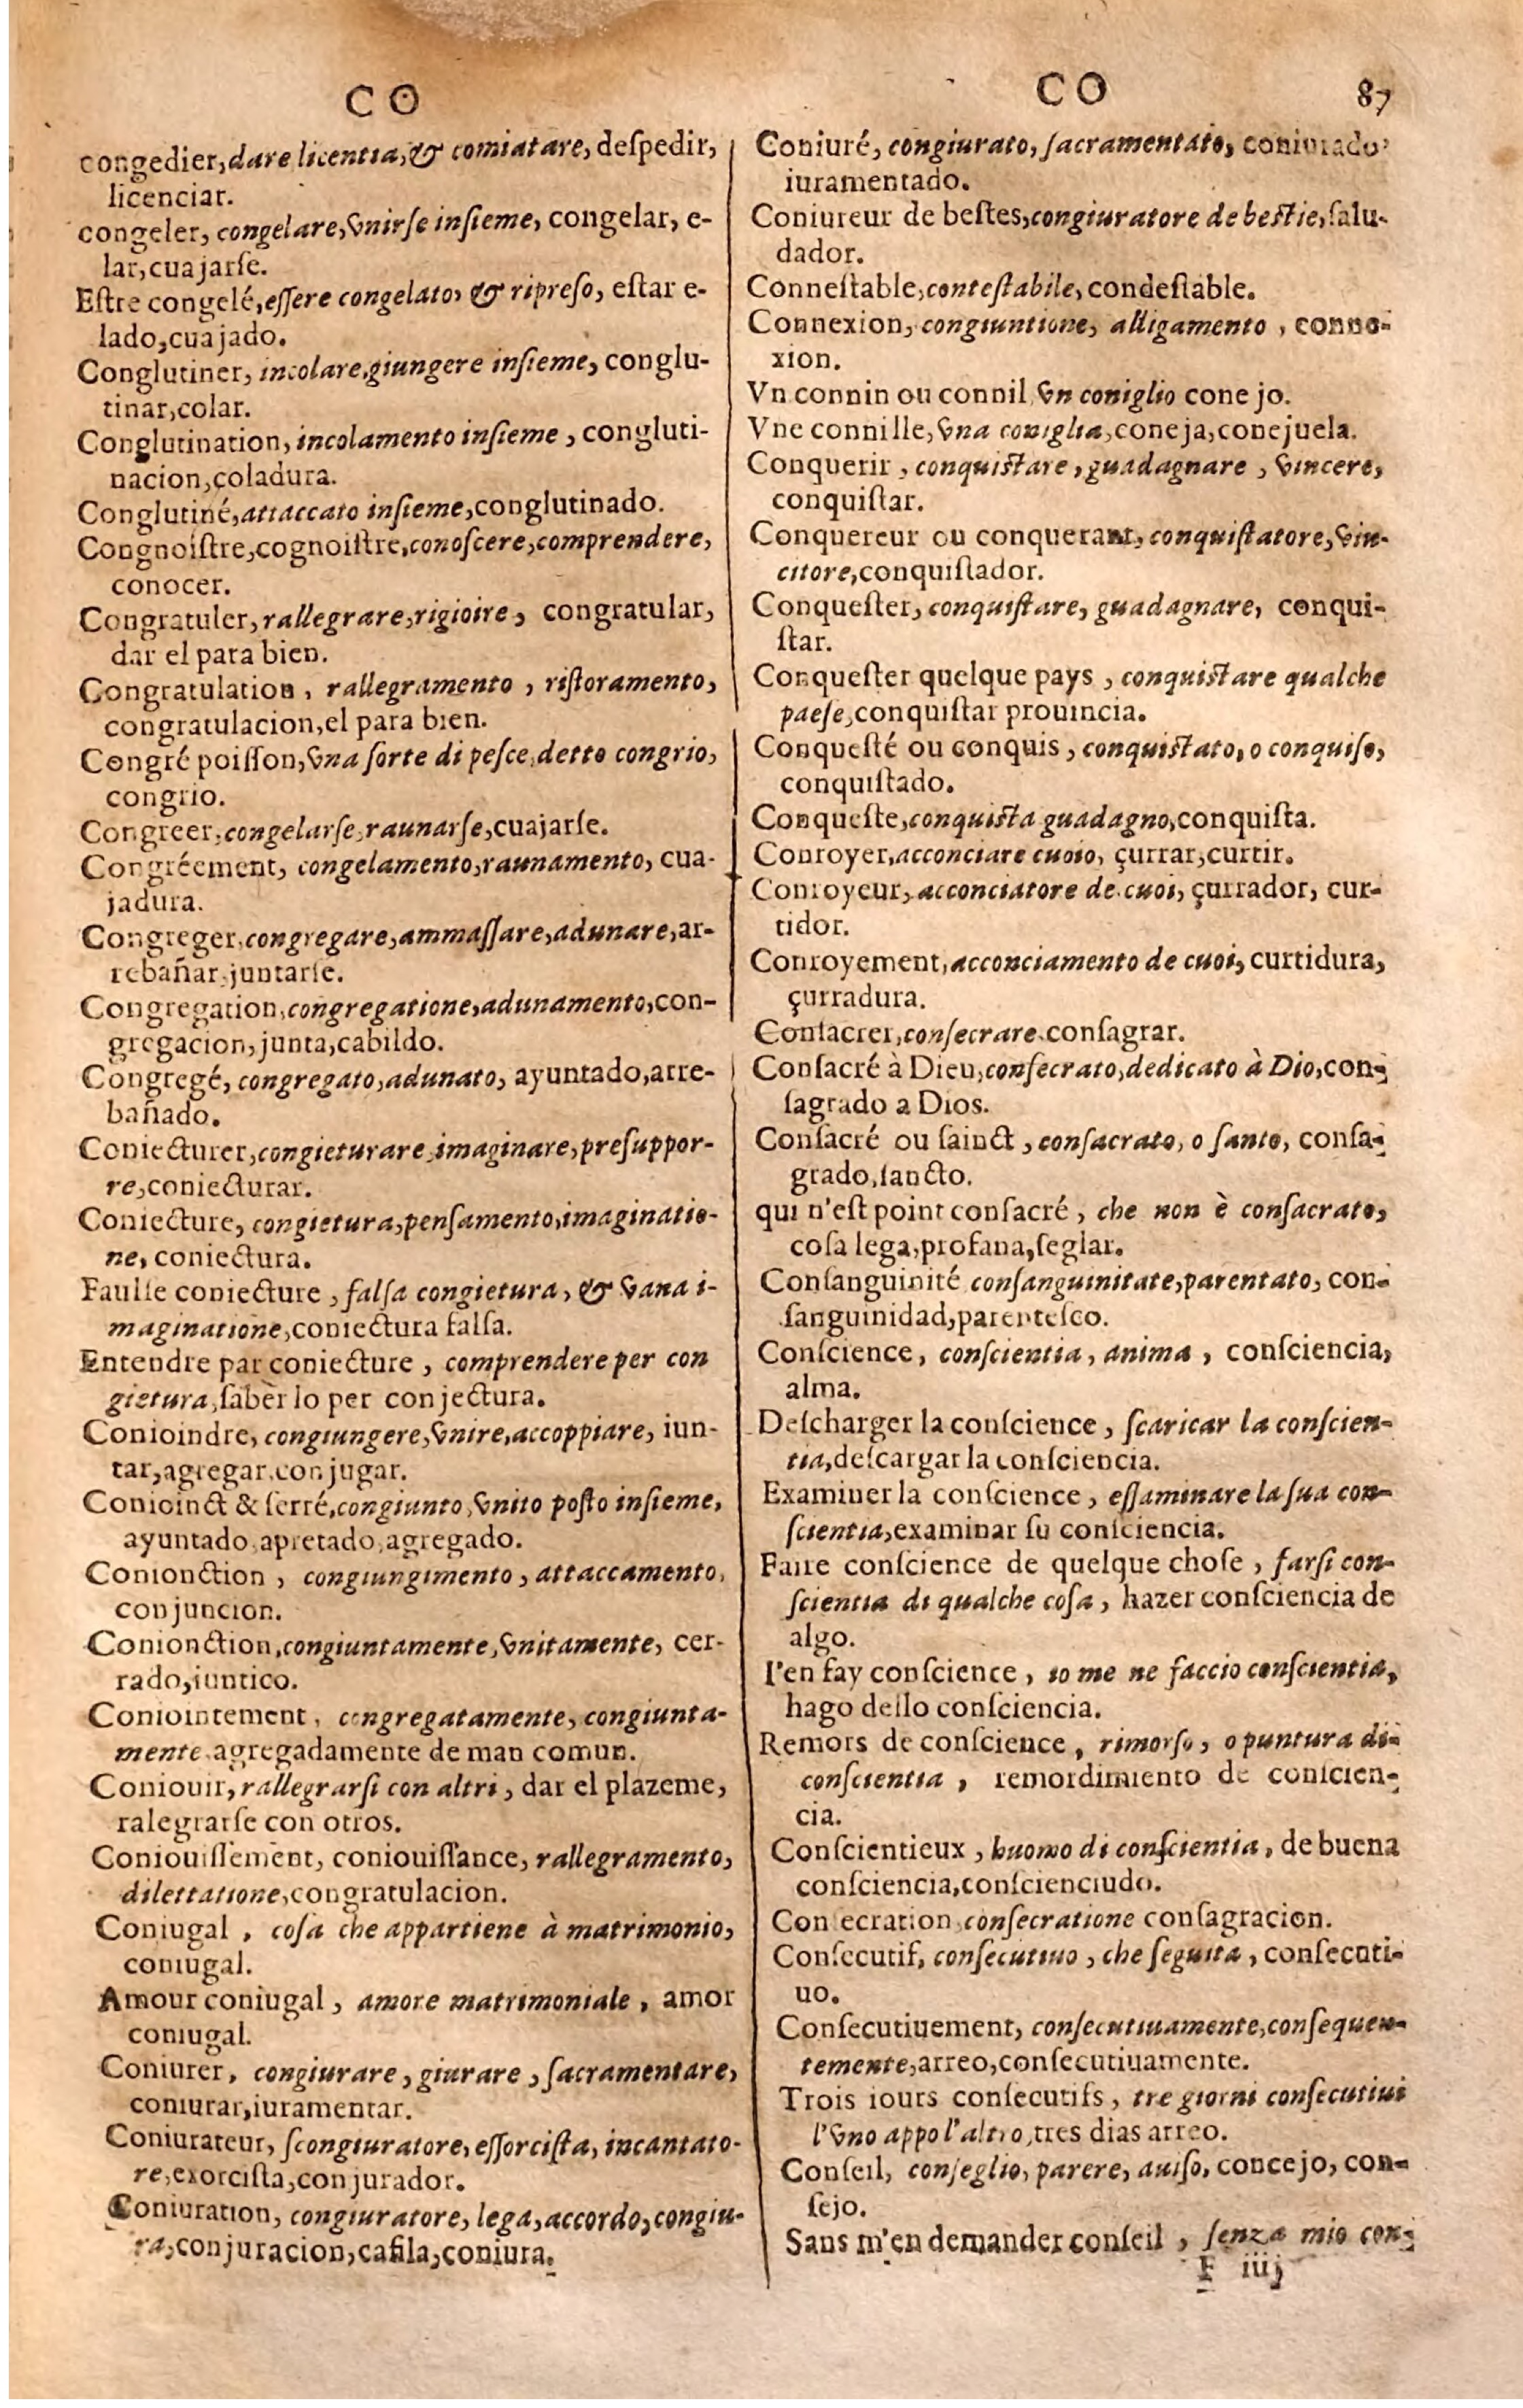 CO
congedier, dare licentia, & comiatare, deſpedir,
licenciar.
congeler, congelare, vnirſe inſieme, congelar, e-
lar, cuajarſe.
Eſtre congelé, eſſere congelato, & ripreſo, eſtar e-
lado, cuajado.
Conglutiner, incolare, giungere inſieme, conglu-
tinar, colar.
Conglutination, incolamento inſieme, congluti-
nacion, coladura.
Conglutiné, attaccato inſieme, conglutinado.
Congnoiſtre, cognoiſtre, conoſcere, comprendere,
conocer.
Congratuler, rallegrare, rigioire, congratular,
dar el para bien.
Congratulation, rallegramento, riſtoramento,
congratulacion, el para bien.
Congré poiſſon, vna ſorte di peſce, detto congrio,
congrio.
Congreer, congelarſe, raunarſe, cuajarſe.
Congréement, congelamento, raunamento, cua-
jadura.
Congreger, congregare, ammaſſare, adunare, ar-
rebañar, juntarſe.
Congregation, congregatione, adunamento, con-
gregacion, junta, cabildo.
Congregé, congregato, adunato, ayuntado, arre-
bañado.
Coniecturer, congieturare, imaginare, preſuppor-
re, coniecturar.
Coniecture, congietura, penſamento, imaginatio-
ne, coniectura.
Faulſe coniecture, falſa congietura, & vana i-
maginatione, coniectura falſa.
Entendre par coniecture, comprendere per con
gietura, ſabèr lo per conjectura.
Conioindre, congiungere, vnire, accoppiare, iun-
tar, agregar, conjugar.
Conioinct & ſerré, congiunto, vnito poſto inſieme,
ayuntado, apretado, agregado.
Conionction, congiungimento, attaccamento,
conjuncion.
Conionction, congiuntamente, vnitamente, cer-
rado, iuntico.
Coniointement, congregatamente, congiunta-
mente agregadamente de man comun.
Coniouir, rallegrarſi con altri, dar el plazeme,
ralegrarſe con otros.
Coniouiſſement, coniouiſſance, rallegramento,
dilettatione, congratulacion.
Coniugal, coſa che appartiene à matrimonio,
coniugal.
Amour coniugal, amore matrimoniale, amor
coniugal.
Coniurer, congiurare, giurare, ſacramentare,
coniurar, iuramentar.
Coniurateur, ſcongiuratore, eſſorciſta, incantato-
re, exorciſta, conjurador.
Coniuration, congiuratore, lega, accordo, congiu-
ra, conjuracion, cafila, coniura.
CO 87
Coniuré, congiurato, ſacramentato, coniurado
iuramentado.
Coniureur de beſtes, congiuratore de beſtie, ſalu-
dador.
Conneſtable, conteſtabile, condeſtable.
Connexion, congiuntione, alligamento, conne-
xion.
Vn connin ou connil, vn coniglio conejo.
Vne connille, vna coniglia, coneja, conejuela.
Conquerir, conquiſtare, guadagnare, vincere,
conquiſtar.
Conquereur ou conquerant, conquiſtatore, vin-
citore, conquiſtador.
Conqueſter, conquiſtare, guadagnare, conqui-
ſtar.
Conqueſter quelque pays, conquiſtare qualche
paeſe, conquiſtar prouincia.
Conqueſté ou conquis, conquiſtato, o conquiſo,
conquiſtado.
Conqueſte, conquiſta guadagno, conquiſta.
Conroyer, acconciare cuoio, çurrar, curtir.
Conroyeur, acconciatore de cuoi, çurrador, cur-
tidor.
Conroyement, acconciamento de cuoi, curtidura,
çurradura.
Conſacrer, conſecrare conſagrar.
Conſacré à Dieu, conſecrato, dedicato à Dio, con-
ſagrado a Dios.
Conſacré ou ſainct, conſacrato, o ſanto, conſa-
grado, ſancto.
qui n'eſt point conſacré, che non è conſacrato,
coſa lega, profana, ſeglar.
Conſanguinité conſanguinitate, parentato, con-
ſanguinidad, parenteſco.
Conſcience, conſcientia, anima, conſciencia,
alma.
Deſcharger la conſcience, ſcaricar la conſcien-
tia, deſcargar la conſciencia.
Examiner la conſcience, eſſaminare la ſua con-
ſcientia, examinar ſu conſciencia.
Faire conſcience de quelque choſe, farſi con-
ſcientia di qualche coſa, hazer conſciencia de
algo.
I'en fay conſcience, io me ne faccio conſcientia,
hago dello conſciencia.
Remors de conſcience, rimorſo, o puntura di-
conſcientia, remordimiento de conſcien-
cia.
Conſcientieux, huomo di conſcientia, de buena
conſciencia, conſcienciudo.
Con ecration conſecratione conſagracion.
Conſecutif, conſecutiuo, che ſeguita, conſecuti-
uo.
Conſecutiuement, conſecutiuamente, conſequen-
temente, arreo, conſecutiuamente.
Trois iours conſecutifs, tre giorni conſecutiui
l'vno appo l'altro, tres dias arreo.
Conſeil, conſeglio, parere, auiſo, concejo, con-
ſejo.
Sans m'en demander conſeil, ſenza mio con-
F iiij